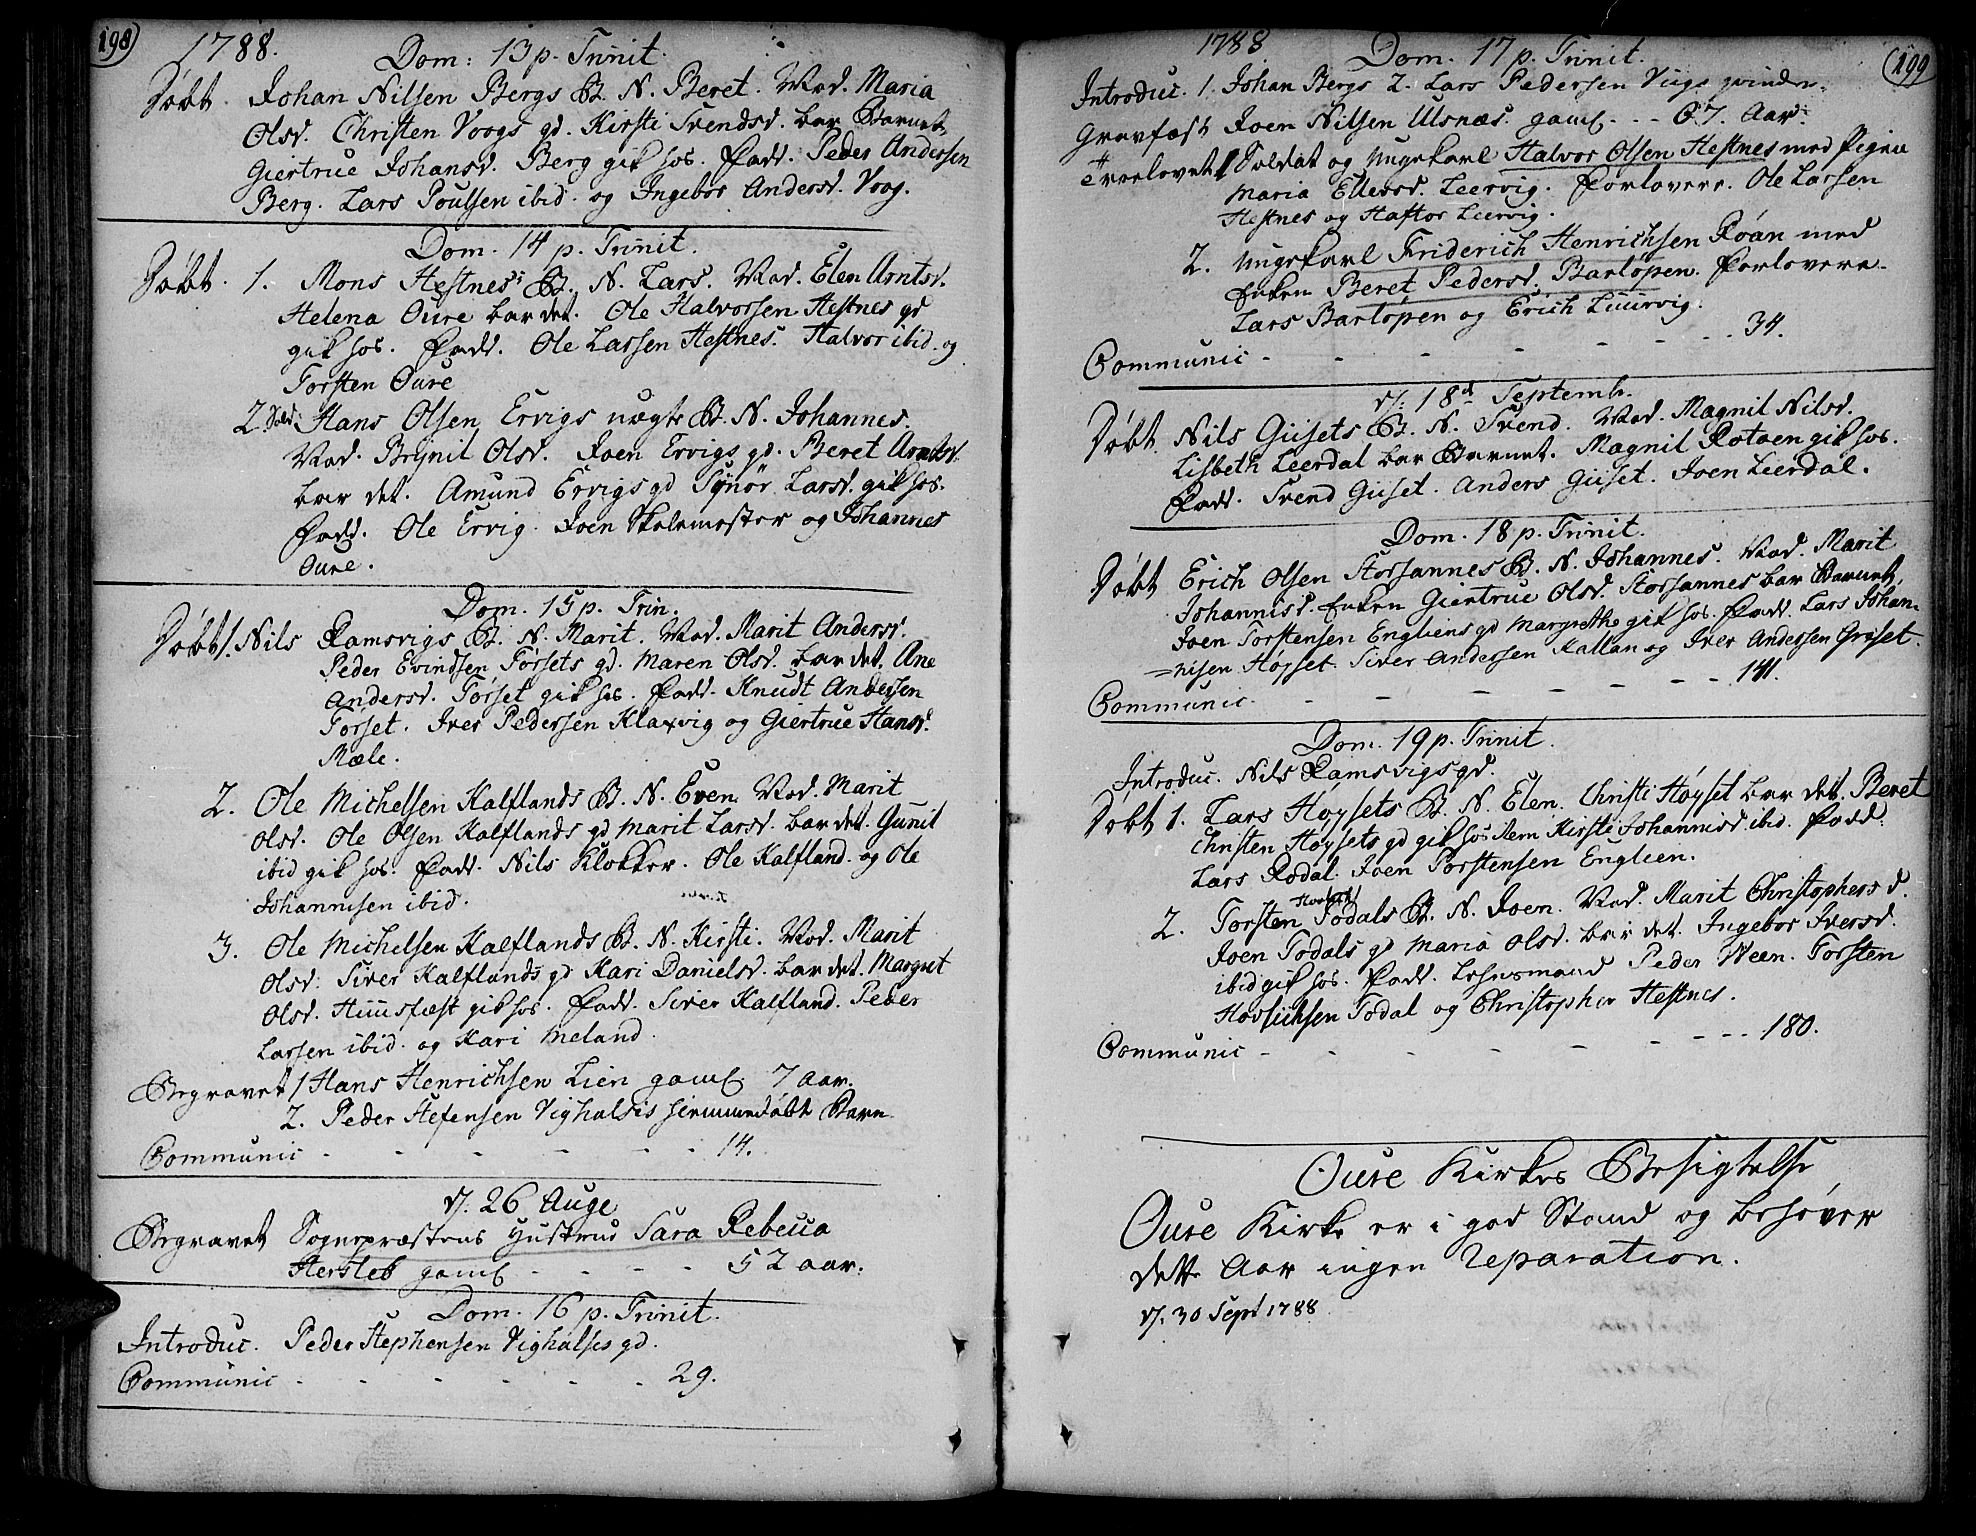 198
1788.
Dom: 13 p. Trinit.
Døbt. Johan Nilsen Bergs B. N. Beret. Mod. Maria
Olsd. Christen Voogs gd. Kirsti Svendsd. bar Barnet,
Giertrue Johansd. Berg gik hos. Fadd. Peder Andersen
Berg. Lars Poulsen ibid. og Ingebor Andersd. Voog.
Dom. 14 p. Trinit.
Døbt. 1. Mons Hestnes' B. N. Lars. Mod. Elen Arntsd.
Helena Oure bar det. Ole Halvorsen Hestnes gd
gik hos. Fadd. Ole Larsen Hestnes. Halvor ibid. og
Torsten Oure
2. Sold. Hans Olsen Ervigs uægte B. N. Johannes.
Mod. Brynil Olsd. Joen Ervigs gd. Beret Arntsd.
bar det. Amund Ervigs gd Synør Larsd. gik hos.
Fadd. Ole Ervig. Joen Skolemester og Johannes
Oure.
Dom. 15 p. Trin.
Døbt 1. Nils Ramsvigs B. N. Marit. Mod. Marit Andersd.
Peder Evindsen Torsets gd. Maren Olsd. bar det. Ane
Andersd. Torset gik hos. Fadd. Knudt Andersen
Torset. Iver Pedersen Klaxvig og Giertrue Hansd.
Mæle.
2. Ole Michelsen Kalflands B. N. Even. Mod. Marit
Olsd. Ole Olsen Kalflands gd Marit Larsd. bar det. Gunil
ibid gik hos. Fadd. Nils Klokker. Ole Kalfland. og Ole
Johannisen ibid.
3. Ole Michelsen Kalflands B. N. Kirsti. Mod. Marit
Olsd. Siver Kalflands gd Kari Danielsd. bar det. Margret
Olsd. Huusfæst gik hos. Fadd. Siver Kalfland. Peder
Larsen ibid. og Kari Meland.
Begravet 1 Hans Henrichsen Lien gaml 7 Aar.
2. Peder Stefensen Vighalsis hiemmedøbt Barn
Communic - - - - - - 14.
d. 26 Aug
Begravet Sognepræstens Hustrue Sara Rebecca
Hersleb gaml - - - - 52 aar.
Dom. 16 p. Trinit.
Introduc. Peder Stephensen Vighalsis gd.
Communic - - - - - - 29.
1788
199
Dom. 17 p. Trinit.
Introduc. 1. Johan Bergs 2. Lars Pedersen Viigs qvinder.
Gravfæst Joen Nilsen Ulsnæs. gaml - - - 67. Aar.
Trrolovet 1 Soldat og Ungekarl Halvor Olsen Hestnes med Pigen
Maria Ellevsd. Leervig. Forlovere. Ole Larsen
Hestnes og Haftor Leervig.
2. Ungekarl Friderich Henrichsen Roan med
Enken Beret Pedersd. Bartopen. Forlovere.
Lars Bartopen og Erich Liurvig.
Communic - - - - - - - 34.
d. 18d Septembr.
Døbt. Nils Giisets B. N. Svend. Mod. Magnil Nilsd.
Lisbeth Leerdal bar Barnet. Magnil Rotaen gik hos.
Fadd. Svend Giiset. Anders Giiset. Joen Leerdal.
Dom. 18 p. Trinit.
Døbt Erich Olsen Storsannes B. N. Johannes. Mod. Marit
Johannisd. Enken Giertrue Olsd. Storsannes bar Barnet,
Joen Torstensen Engliens gd Margrethe gik hos. Fadd. Lars Johan-
=nisen Høyset. Siver Andersen Kallan og Iver Andersen Griset.
Communic - - - - - - - 141.
Dom. 19 p. Trinit.
Introduc. Nils Ramsvigs gd.
Døbt 1. Lars Høysets B. N. Elen. Christi Høyset bar det. Beret
Christen Høysets gd gik hos item Kirsti Johannisd. ibid. Fadd.
Lars Rodal. Joen Torstensen Englien.
2. Torsten Todals B. N. Joen. Mod. Marit Christophersd.
Joen Todals gd Maria Olsd. bar det. Ingebor Iversd.
ibid gik hos. Fadd. Lehnsmand Peder Ween. Torsten
Todal og Christopher Hestnes.
Communic - - - - - - - - 180.
Oure Kirkes Besigtelse
Oure Kirke er i god Stand og behøver
dette Aar ingen Reparation.
d. 30 Sept 1788.